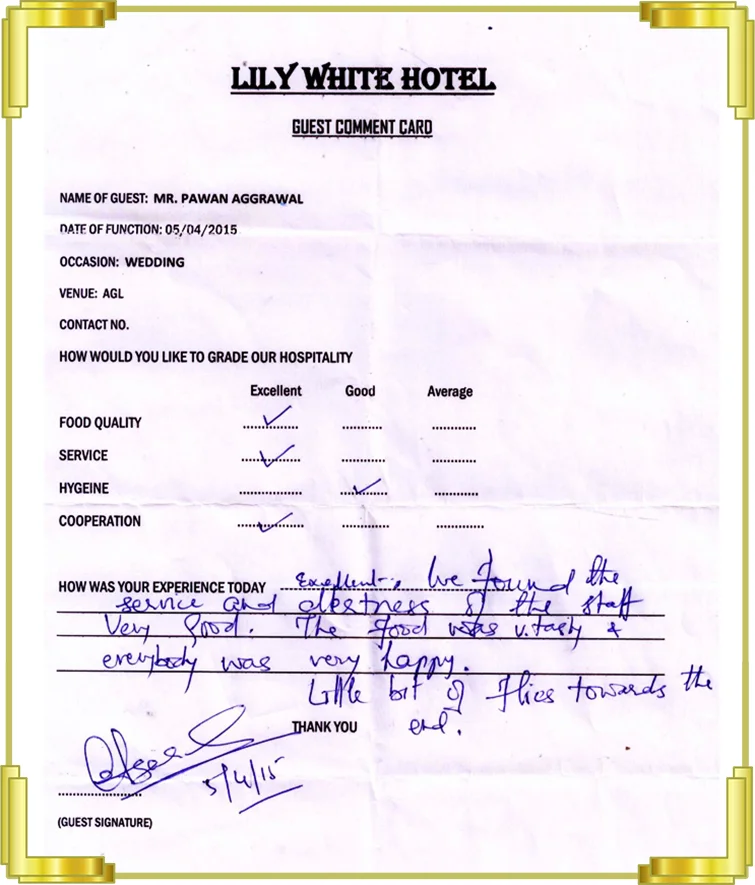 LILY WHITE HOTEL
GUEST COMMENT CARD
NAME OF GUEST: MR. PAWAN AGGRAWAL
DATE OF FUNCTION: 05/04/2015
OCCASION: WEDDING
VENUE: AGL
CONTACT NO.
HOW WOULD YOU LIKE TO GRADE OUR HOSPITALITY
Excellent Good Average
FOOD QUALITY ✓
SERVICE ✓
HYGEINE ✓
COOPERATION ✓
HOW WAS YOUR EXPERIENCE TODAY Excellent., We found the
service and alertness of the staff
Very Good. The food was v.tasty &
everybody was very happy.
Little bit of flies towards the
end.
THANK YOU
5/4/15
(GUEST SIGNATURE)